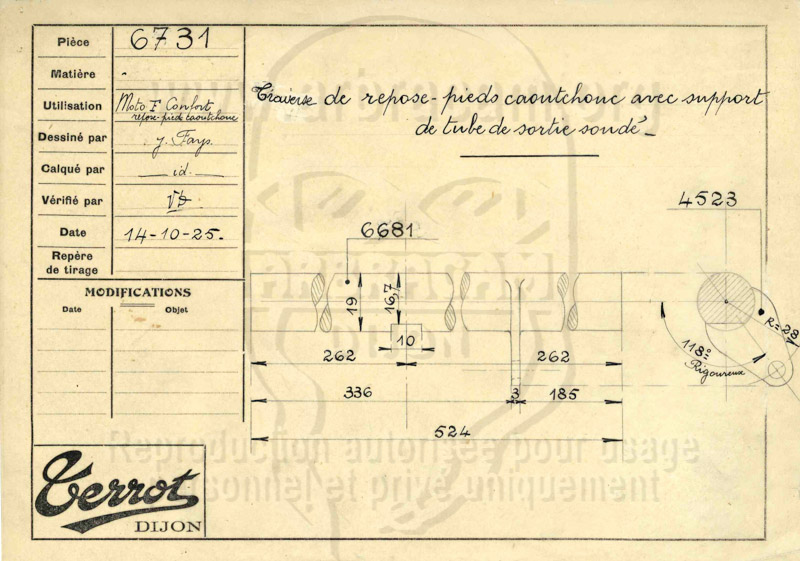 Pièce 6731
Matière -
Utilisation Moto F Confort
repose-pied caoutchouc
Dessiné par J. Fays.
Calqué par id.
Vérifié par
Date 14-10-25.
Repère
de tirage
MODIFICATIONS
Date Objet
Terrot
DIJON
Traverse de repose-pieds caoutchouc avec support
de tube de sortie soudé
4523
6681
19
16,7
10
262
262
336
3
185
524
R=28
118°
Rigoureux
Reproduction autorisée pour usage
personnel et privé uniquement